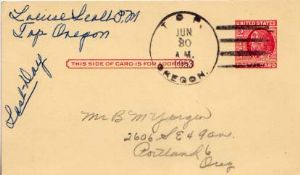 Louise Scott P.M
Top Oregon
Last Day
TOP
JUN
30
A.M.
1953
OREGON.
UNITED STATES
THIS SIDE OF CARD IS FOR ADDRESS
Mr B M Yorgen
2606 SE 49 Ave.
Portland 6
Oreg